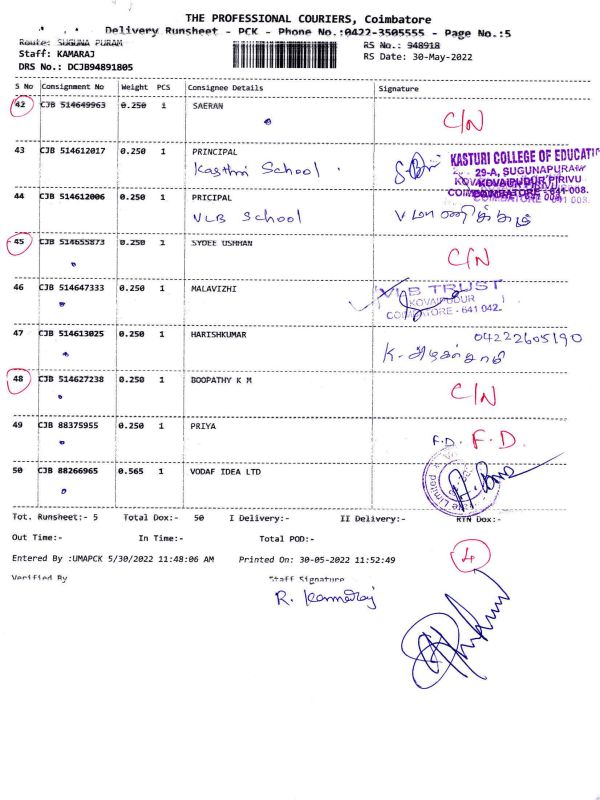 THE PROFESSIONAL COURIERS, Coimbatore
Delivery Runsheet - PCK - Phone No.:0422-3505555 - Page No.:5
Route: SUGUNA PURAM
RS No.: 948918
Staff: KAMARAJ
RS Date: 30-May-2022
DRS No.: DCJB94891805
S No Consignment No Weight PCS Consignee Details Signature
42 CJB 514649963 0.250 1 SAERAN
C/N
43 CJB 514612017 0.250 1 PRINCIPAL
Kasthri School
KASTURI COLLEGE OF EDUCATI
29-A, SUGUNAPURAM
KOVAIPUDUR PIRIVU
44 CJB 514612006 0.250 1 PRICIPAL
VLB School
45 CJB 514655873 0.250 1 SYDEE USHHAN
C/N
46 CJB 514647333 0.250 1 MALAVIZHI
VLB TRUST
KOVAIPUDUR
COIMBATORE - 641 042.
47 CJB 514613025 0.250 1 HARISHKUMAR
04222605190
48 CJB 514627238 0.250 1 BOOPATHY K M
C/N
49 CJB 88375955 0.250 1 PRIYA
F.D. F.D.
50 CJB 88266965 0.565 1 VODAF IDEA LTD
Limited
Tot. Runsheet:- 5 Total Dox:- 50 I Delivery:- II Delivery:- RTN Dox:-
Out Time:- In Time:- Total POD:-
4
Entered By :UMAPCK 5/30/2022 11:48:06 AM Printed On: 30-05-2022 11:52:49
Verified By Staff Signature
R. Kamaraj